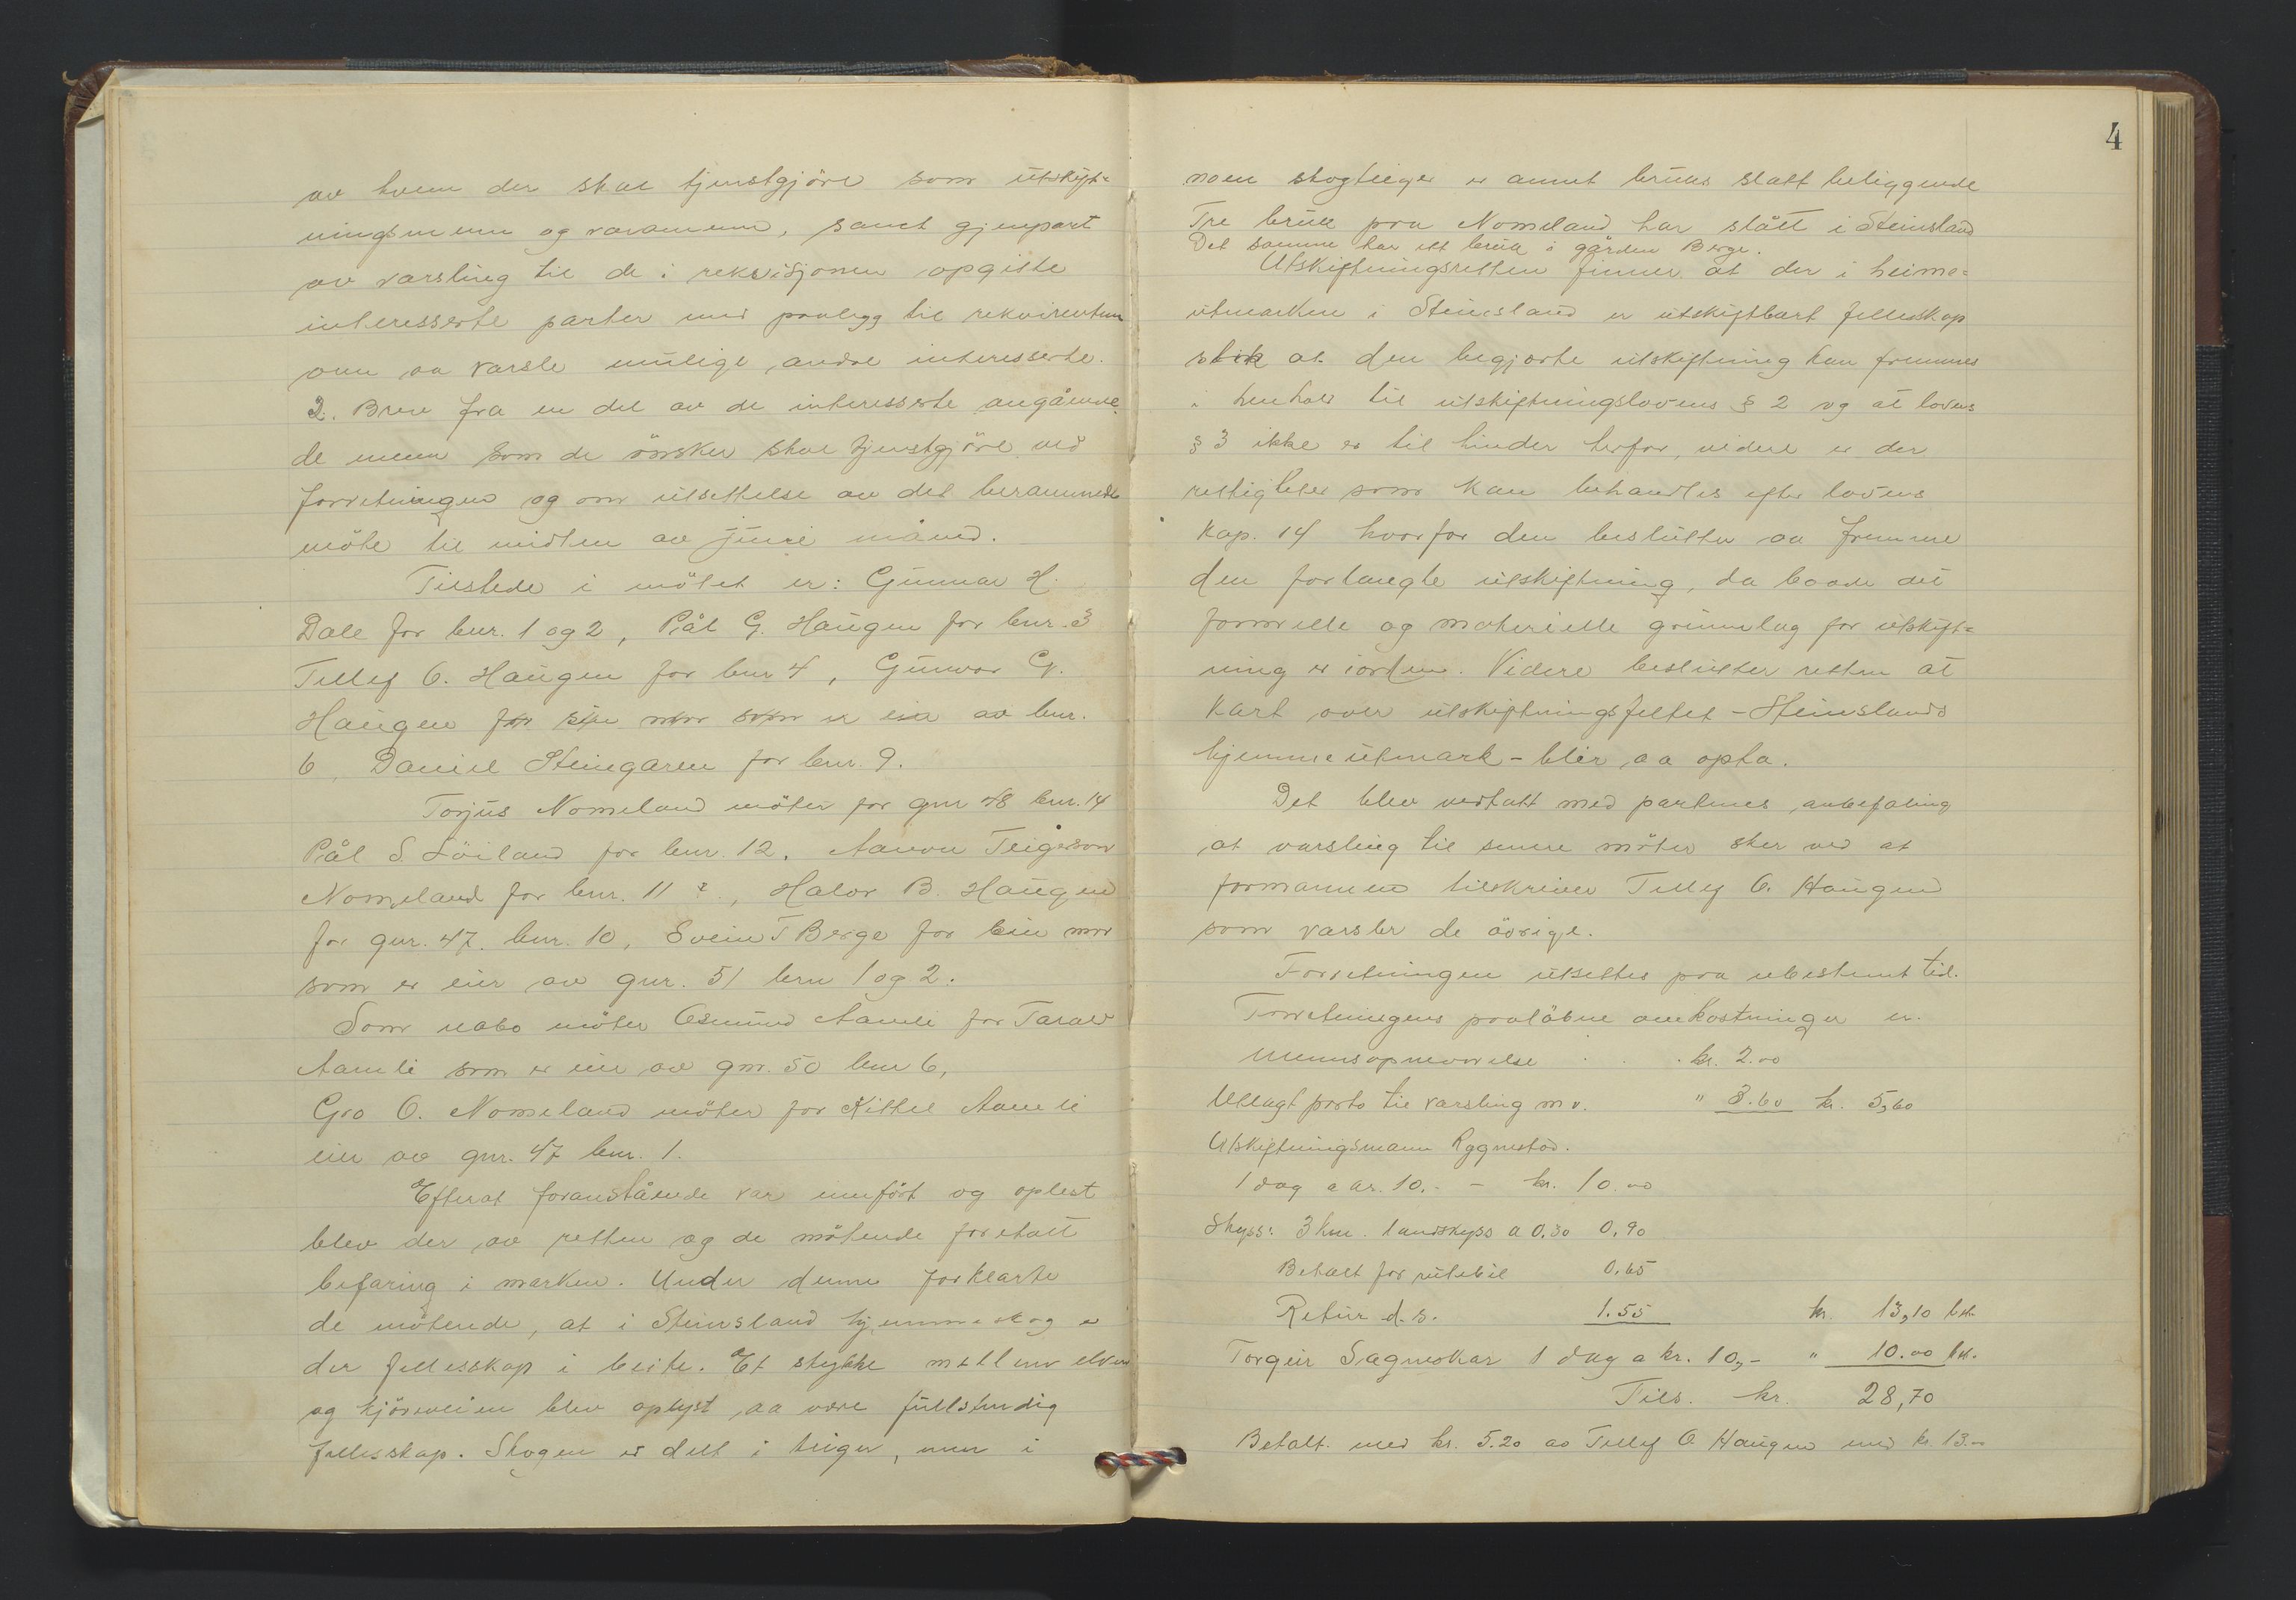 av hvem der skal tjenstgjöre som utskift-
ningsmenn og varamenn, samt gjenpart
av varsling til de i rekvisisjonen opgitte
interesserte parter med paalegg til rekvirenten
om aa varsle mulige andre interesserte.
2. Brev fra en del av de interesserte angående
de menn som de önsker skal tjenstgjöre ved
forretningen og om utsettelse av det berammede
möte til midten av juni måned.
Tilstede i mötet er: Gunnar H.
Dale for bnr. 1 og 2, Pål G. Haugen for bnr. 3
Tellef O. Haugen for bnr 4, Gunvor G.
Haugen for sin mor som er eier av bnr.
6, Daniel Steingaren for bnr. 9.
Torjus Nomeland möter for gnr 48 bnr. 14
Pål S. Löiland for bnr. 12, Aanon Teigeson
Nomeland for bnr. 11, Halvor B. Haugen
for gnr. 47. bnr. 10, Svein T Berge for sin mor
som er eier av gnr. 51 bnr 1 og 2.
Som nabo möter Osmund Aamli for Tarald
Aamli som er eier av gnr. 50 bnr 6,
Gro O. Nomeland möter for Kittil Aamli
eier av gnr. 47 bnr. 1.
Efterat foranstående var innfört og oplest
blev der av retten og de mötende foretatt
befaring i marken. Under denne forklarte
de mötende, at i Steinsland hjemmeskog er
der fellesskap i beite. Et stykke mellem elven
og kjöreveien blev oplyst aa være fullstendig
fellesskap. Skogen er delt i teiger, men i
4
noen skogteiger er annet bruks slått beliggende
Tre bruk paa Nomeland har slått i Steinsland
Det samme har ett bruk i gården Berge.
Utskiftningsretten finner at der i heime-
utmarken i Steinsland er utskiftbart fellesskap
slik at den begjærte utskiftning kan fremmes
i henhold til utskiftningslovens § 2 og at lovens
§ 3 ikke er til hinder herfor, videre er der
rettigheter som kan behandles efter lovens
kap. 14 hvorfor den beslutter aa fremme
den forlangte utskiftning, da baade det
formelle og materielle grunnlag for utskift-
ning er iorden. Videre beslutter retten at
kart over utskiftningsfeltet - Steinslands
hjemmeutmark - blir aa opta.
Det blev vedtatt med partenes anbefaling
at varsling til senere möter sker ved at
formannen tilskriver Tellef O. Haugen
som varsler de övrige.
Forretningen utsettes paa ubestemt tid.
Forretningens paalöbne omkostninger er.
Mennsopnevnelse . . . kr. 2.00
Utlagt porto til varsling m v. " 3.60 kr. 5,60
Utskiftningsmann Rygnestad.
1 dag a kr. 10.- - kr. 10.00
Skyss: 3 km. landskyss a 0.30 0,90
Betalt for rutebil 0.65
Retur d. s. 1.55 kr. 13,10 bet.
Torgeir Sagneskar 1 dag a kr. 10,- " 10.00 bet.
Tils. kr. 28,70
Betalt med kr. 5.20 av Tellef O. Haugen med kr 13.-